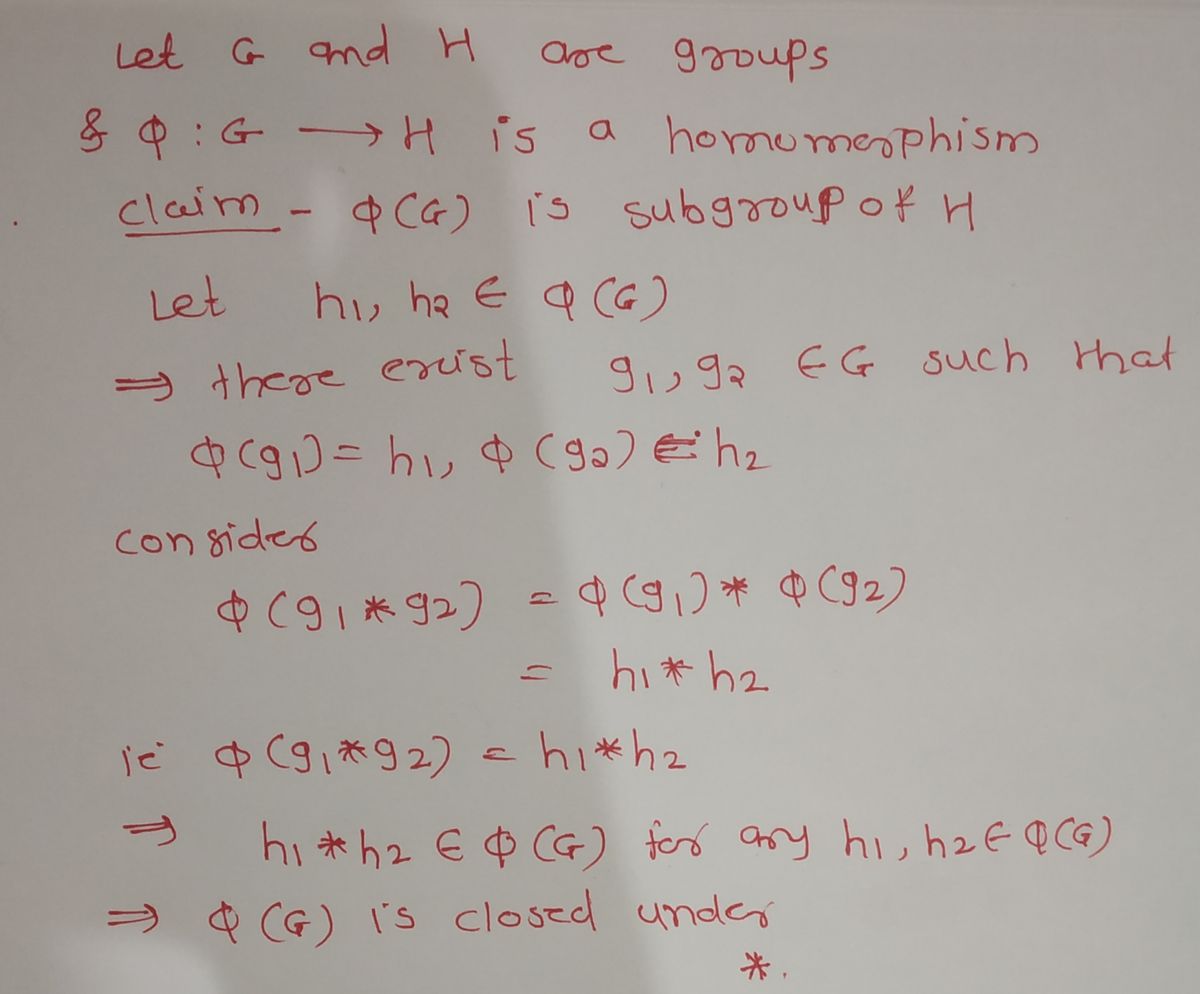 Let G and H are groups
& φ : G ⟶ H is a homomorphism
claim - φ(G) is subgroup of H
Let h1, h2 ∈ φ(G)
⇒ there exist g1, g2 ∈ G such that
φ(g1) = h1, φ(g2) = h2
consider
φ(g1 * g2) = φ(g1) * φ(g2)
= h1 * h2
ie φ(g1 * g2) = h1 * h2
⇒ h1 * h2 ∈ φ(G) for any h1, h2 ∈ φ(G)
⇒ φ(G) is closed under
*.